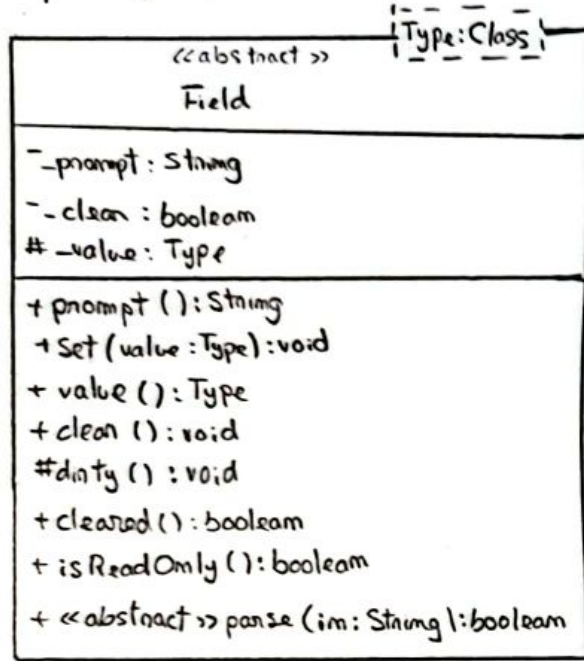 Type: Class
<<abstract>>
Field
- _prompt: String
- _clear: boolean
# _value: Type
+ prompt (): String
+ set (value: Type): void
+ value (): Type
+ clear (): void
# dirty (): void
+ cleared (): boolean
+ isReadOnly (): boolean
+ <<abstract>> parse (in: String): boolean